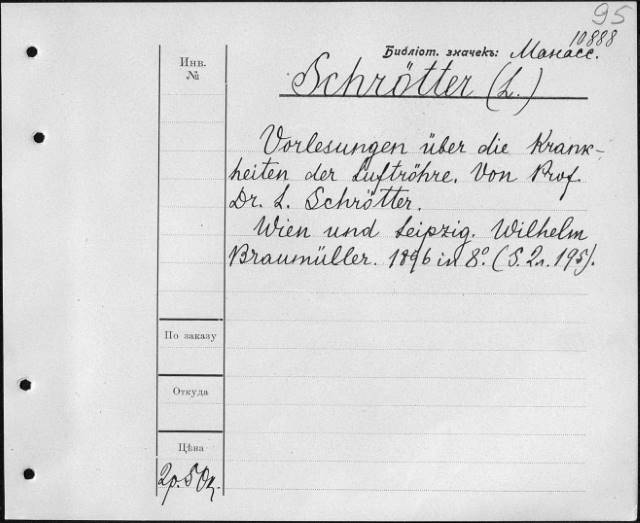 95
10888
Библіот. значекъ: Манасс.
Инв.
№
Schrötter (L.)
Vorlesungen über die Krank-
heiten der Luftröhre. Von Prof.
Dr. L. Schrötter.
Wien und Leipzig. Wilhelm
Braumüller. 1896 in 8º. (S. 2л. 195).
По заказу
Откуда
Цѣна
2р. 50к.